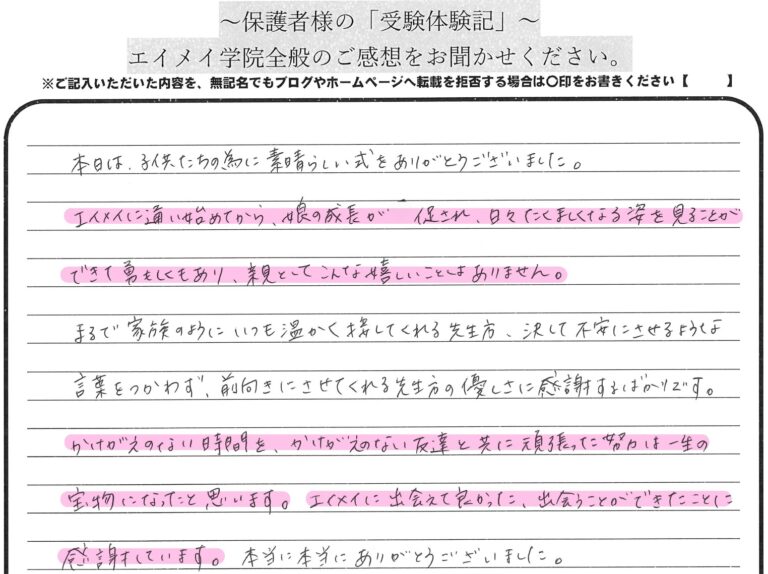 ～保護者様の「受験体験記」～
エイメイ学院全般のご感想をお聞かせください。
※ご記入いただいた内容を、無記名でもブログやホームページへ転載を拒否する場合は〇印をお書きください【　　】
本日は、子供たちの為に素晴らしい式をありがとうございました。
エイメイに通い始めてから、娘の成長が 促され、日々たくましくなる姿を見ることが
できて勇ましくもあり、親としてこんな嬉しいことはありません。
まるで家族のようにいつも温かく接してくれる先生方、決して不安にさせるような
言葉をつかわず、前向きにさせてくれる先生方の優しさに感謝するばかりです。
かけがえのない時間を、かけがえのない友達と共に頑張った努力は一生の
宝物になったと思います。エイメイに出会えて良かった、出会うことができたことに
感謝しています。本当に本当にありがとうございました。